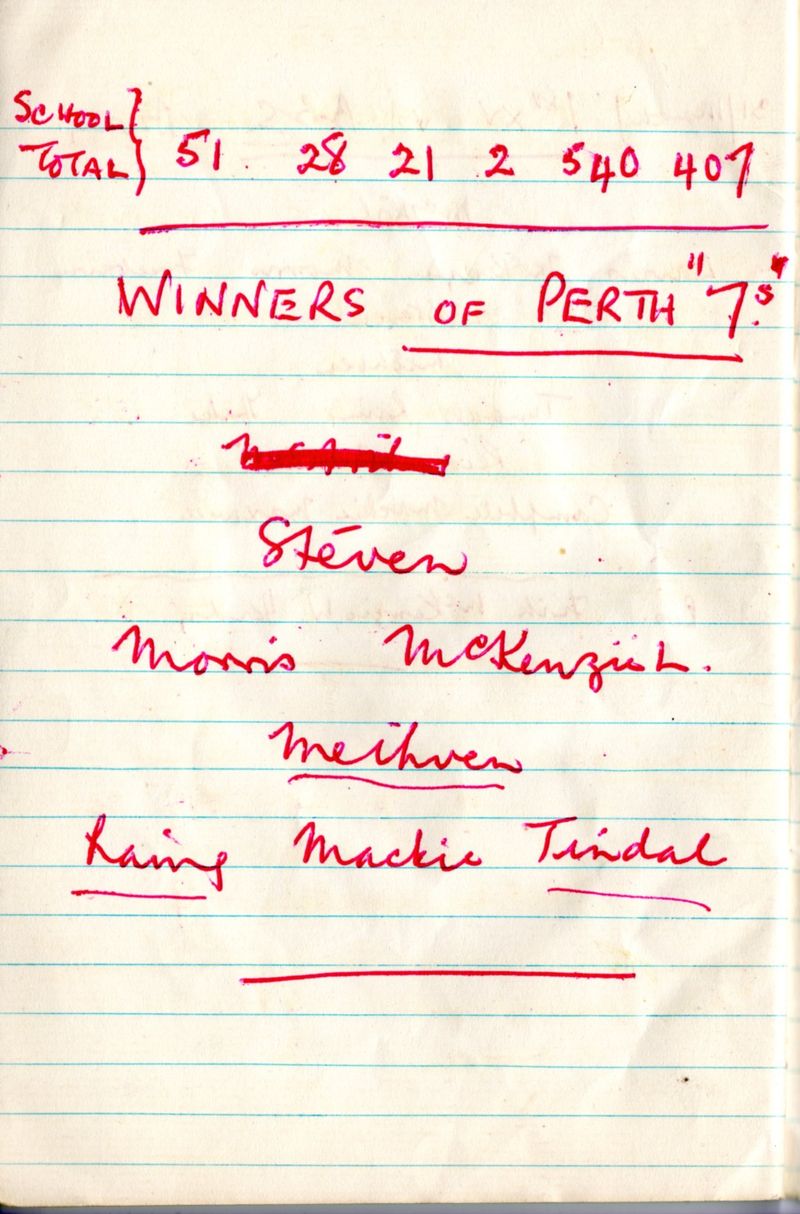 SCHOOL
TOTAL } 51 28 21 2 540 407
WINNERS OF PERTH "7s"
Steven
Morris McKenzie L.
Methven
Laing Mackie Tindal